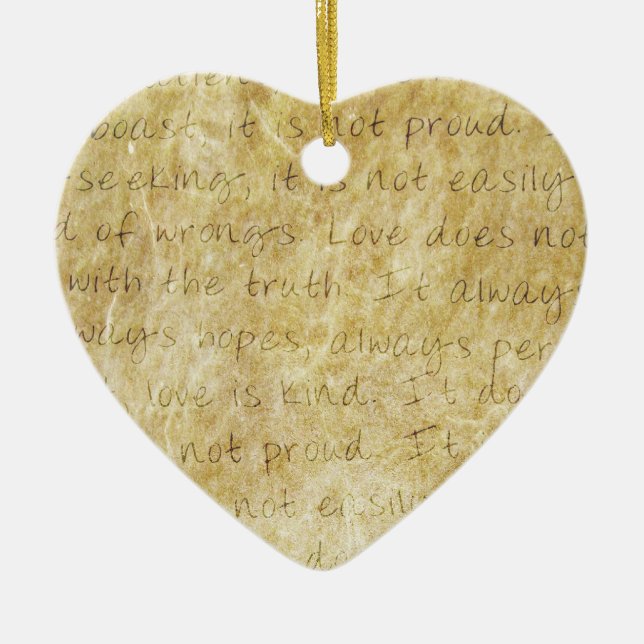 boast, it is not proud.
-seeking, it is not easily
d of wrongs. Love does not
with the truth. It always
ways hopes, always per
love is kind. It do
not proud. It i
not easily
do